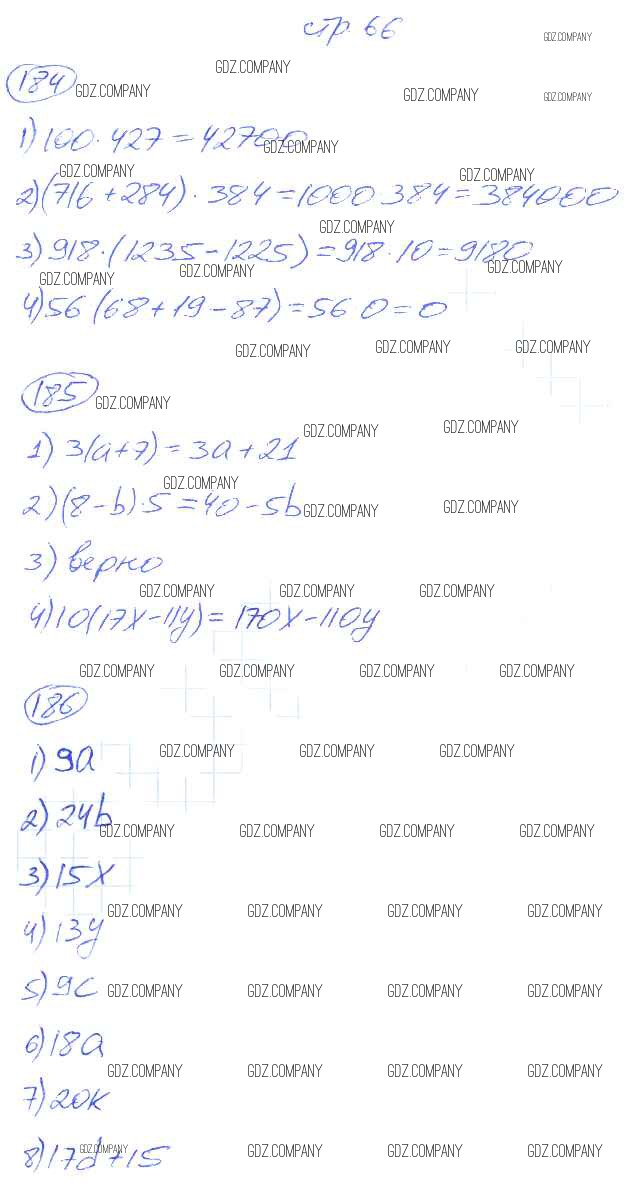 стр. 66
GDZ.COMPANY
GDZ.COMPANY
184 GDZ.COMPANY GDZ.COMPANY GDZ.COMPANY
1) 100 · 427 = 42700
GDZ.COMPANY
GDZ.COMPANY GDZ.COMPANY
2) (716 + 284) · 384 = 1000 384 = 384000
GDZ.COMPANY
3) 918 · (1235 - 1225) = 918 · 10 = 9180
GDZ.COMPANY GDZ.COMPANY GDZ.COMPANY
4) 56 (68 + 19 - 87) = 56 0 = 0
GDZ.COMPANY GDZ.COMPANY GDZ.COMPANY
185 GDZ.COMPANY
GDZ.COMPANY GDZ.COMPANY
1) 3(a + 7) = 3a + 21
GDZ.COMPANY
2) (8 - b) · 5 = 40 - 5b
GDZ.COMPANY GDZ.COMPANY
3) верно
GDZ.COMPANY GDZ.COMPANY GDZ.COMPANY
4) 10(17x - 11y) = 170x - 110y
GDZ.COMPANY GDZ.COMPANY GDZ.COMPANY GDZ.COMPANY
186
1) 9a GDZ.COMPANY GDZ.COMPANY GDZ.COMPANY
2) 24b
GDZ.COMPANY GDZ.COMPANY GDZ.COMPANY GDZ.COMPANY
3) 15x
GDZ.COMPANY GDZ.COMPANY GDZ.COMPANY GDZ.COMPANY
4) 13y
5) 9c GDZ.COMPANY GDZ.COMPANY GDZ.COMPANY GDZ.COMPANY
6) 18a
GDZ.COMPANY GDZ.COMPANY GDZ.COMPANY GDZ.COMPANY
7) 20k
8) 17d + 15 GDZ.COMPANY GDZ.COMPANY GDZ.COMPANY GDZ.COMPANY